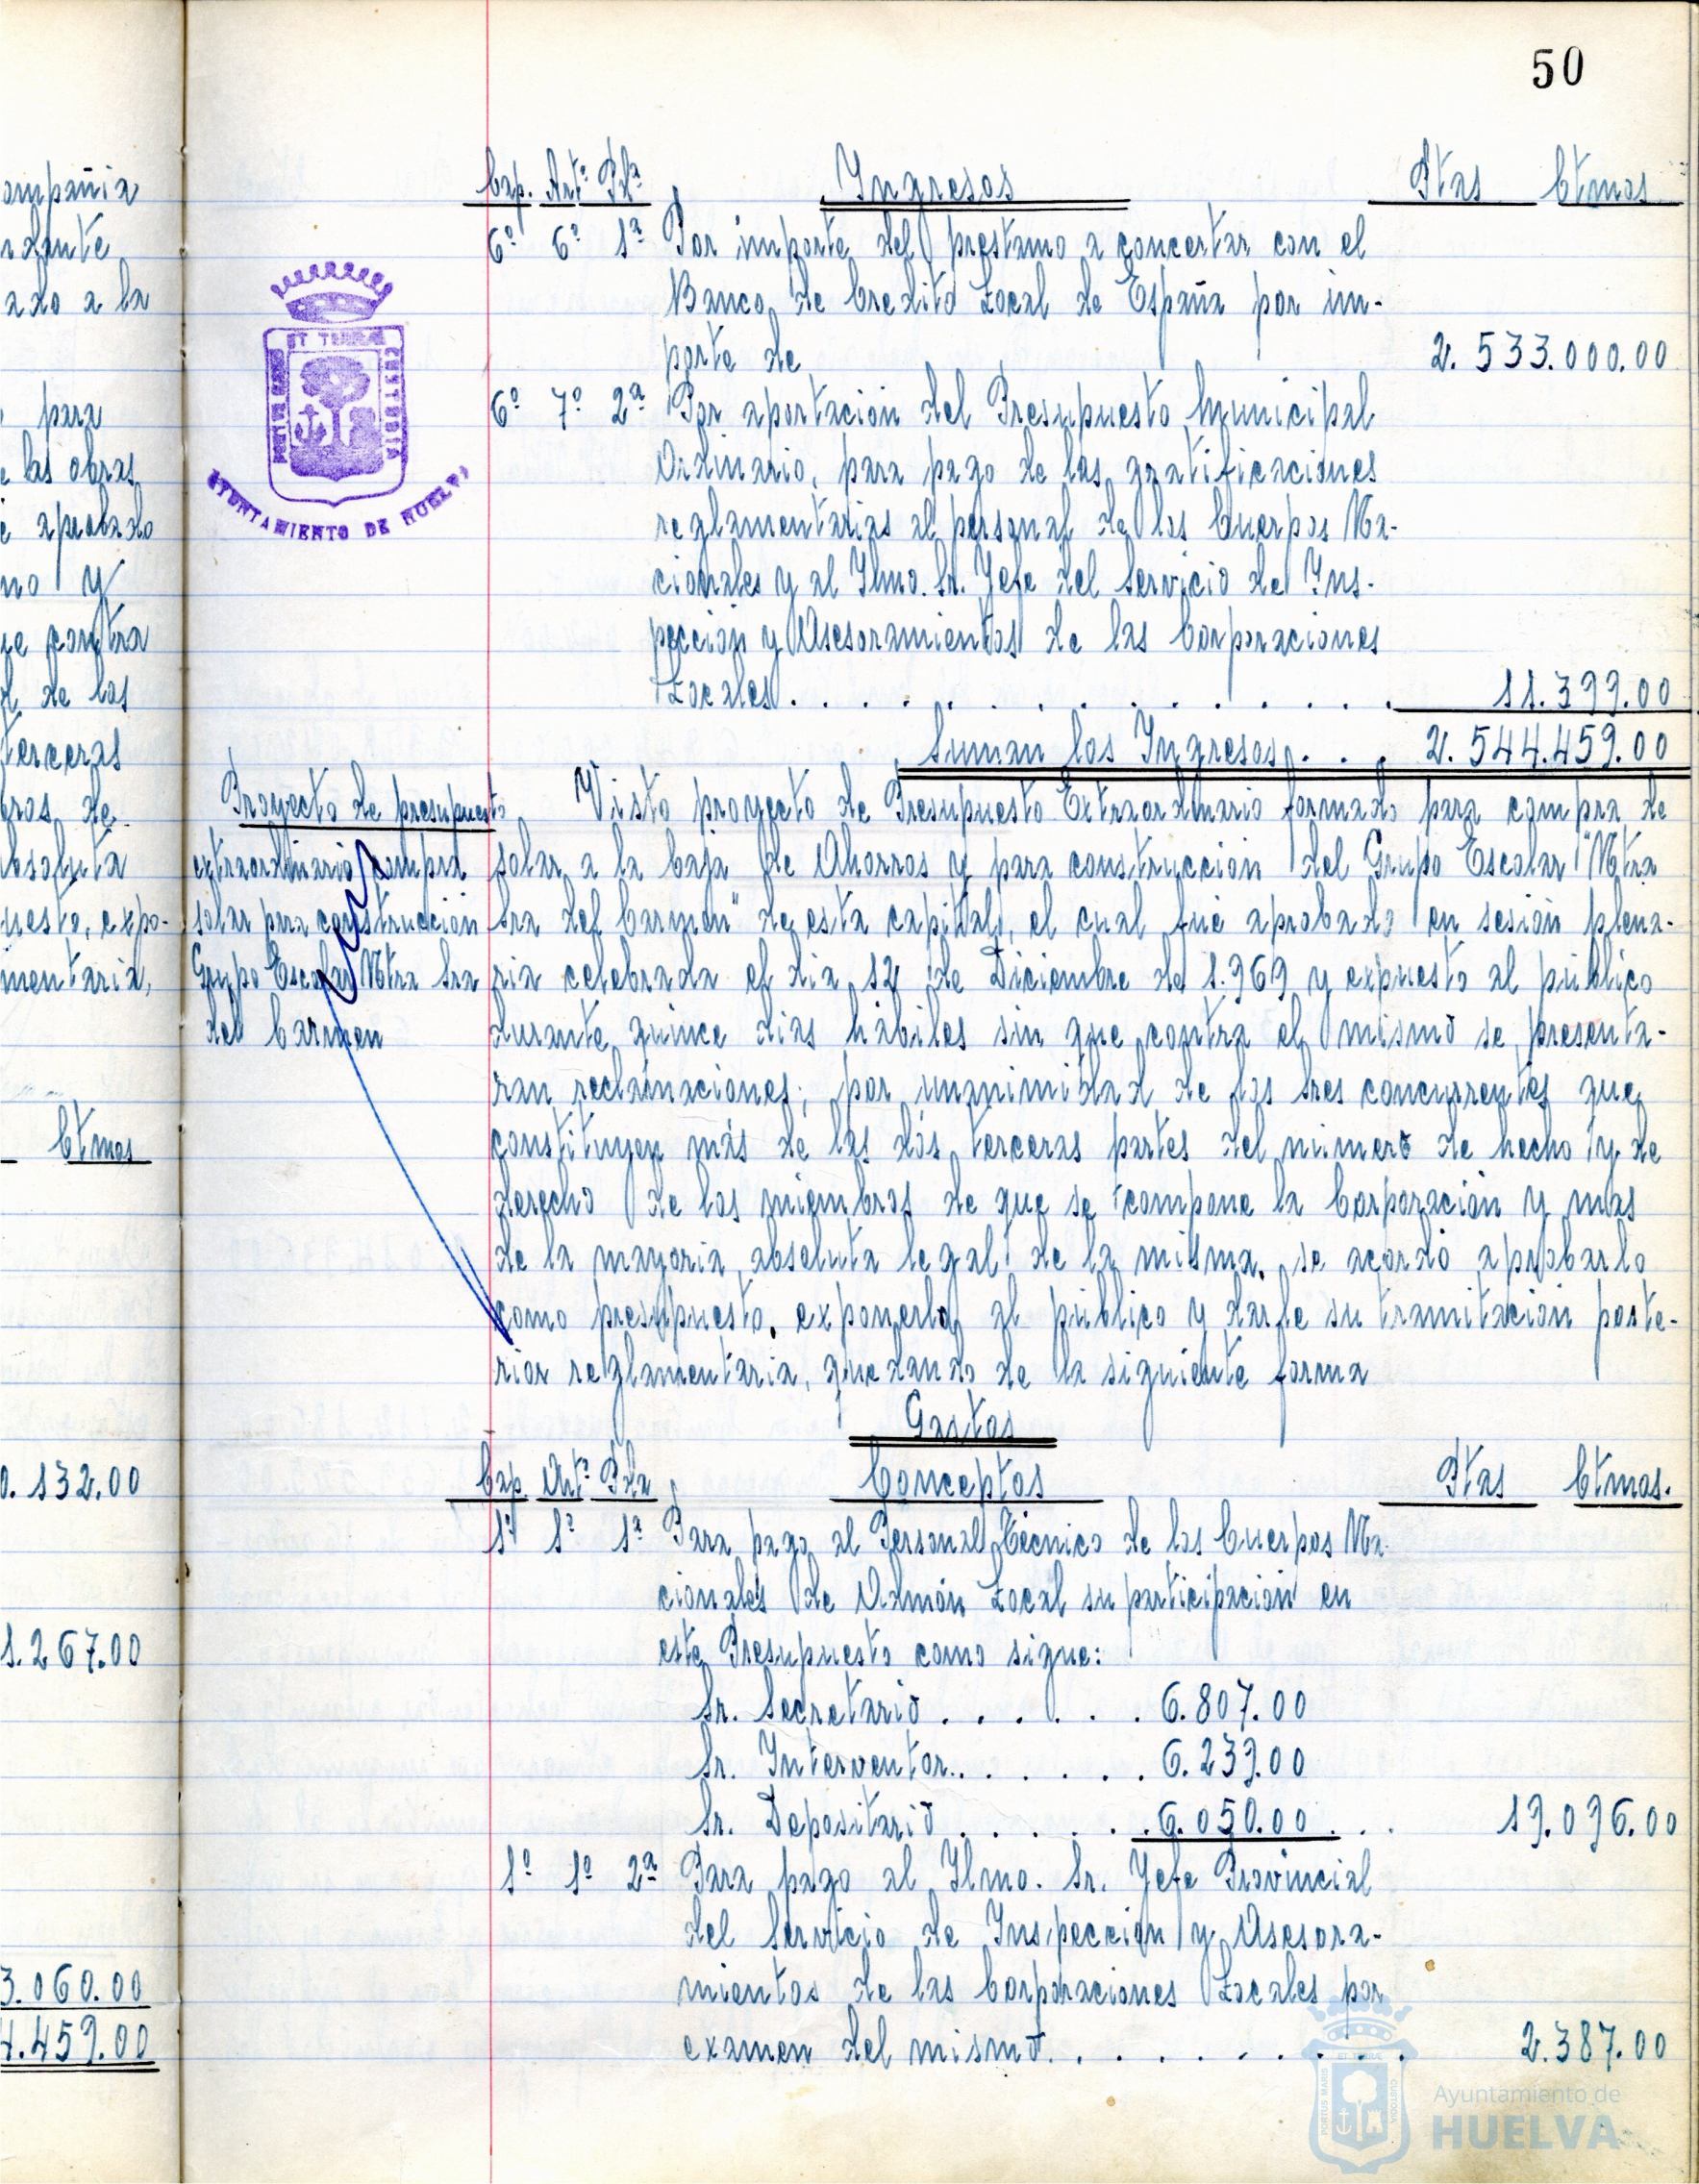 50
ompañia
ado a la
para
e las obras
e aprobado
no y
ue contra
de los
terceras
bros de
bsoluta
uesto, expo-
mentaria,
Ctmos
0.132.00
1.267.00
3.060.00
4.459.00
Cap. Artº Pda Ingresos Ptas Ctmos
6º 6º 1ª Por importe del prestamo a concertar con el
Banco de Credito Local de España por im-
porte de 2.533.000.00
6º 7º 2ª Por aportación del Presupuesto Municipal
Ordinario, para pago de las gratificaciones
reglamentarias al personal de los Cuerpos Na-
cionales y al Ilmo. Sr. Jefe del Servicio de Ins-
pección y Asesoramientos de las Corporaciones
Locales. . . . . . . . . . . . . 11.399.00
Suman los Ingresos. . . 2.544.459.00
ET TERRAE
PORTUS MARIS
CUSTODIA
AYUNTAMIENTO DE HUELVA
Proyecto de presupuesto
extraordinario compra
solar para construcción
Grupo Escolar Ntra Sra
del Carmen
Visto proyecto de Presupuesto Extraordinario formado para compra de
solar a la Caja de Ahorros y para construcción del Grupo Escolar "Ntra
Sra del Carmen" de esta capital, el cual fué aprobado en sesión plena-
ria celebrada el dia 12 de Diciembre de 1.969 y expuesto al público
durante quince dias hábiles sin que contra el mismo se presenta-
ran reclamaciones; por unanimidad de los Sres concurrentes que
constituyen más de las dos terceras partes del número de hecho y de
derecho de los miembros de que se compone la Corporación y mas
de la mayoria absoluta legal de la misma, se acordó aprobarlo
como presupuesto, exponerlo al público y darle su tramitación poste-
rior reglamentaria, quedando de la siguiente forma
Gastos
Cap. Artº Pda Conceptos Ptas Ctmos.
1º 1º 1ª Para pago al Personal Técnico de los Cuerpos Na-
cionales de Admón Local su participación en
este Presupuesto como sigue:
Sr. Secretario . . . . . . 6.807.00
Sr. Interventor. . . . . . . 6.239.00
Sr. Depositario . . . . . . 6.050.00 . . . 19.096.00
1º 1º 2ª Para pago al Ilmo. Sr. Jefe Provincial
del Servicio de Inspección y Asesora-
mientos de las Corporaciones Locales por
examen del mismo. . . . . . . . . 2.387.00
ET TERRAE
PORTUS MARIS
CUSTODIA
Ayuntamiento de
HUELVA